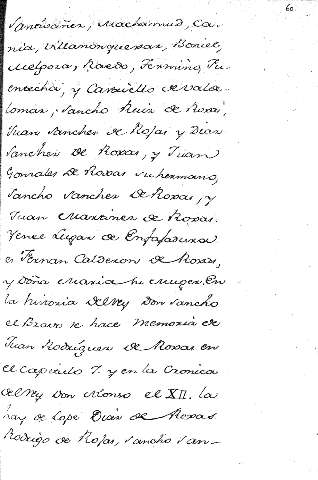 60
Santivañez, Machamud, Ca-
nia, Villanonquexar, Boniel,
Melgoza, Raedo, Fermiño, Fu-
entecha, y Castiello de valde
lomar, Sancho Ruiz de Roxas,
Juan Sanchez de Rojas y Dia
Sanchez de Roxas, y Juan
Gonzales de Roxas su hermano,
Sancho Sanchez de Roxas, y
Juan Martinez de Roxas.
Lugar de
es Fernan Calderon de Roxas,
y Doña Maria su muger. En
la historia del Rey Don Sancho
el Bravo se hace memoria de
Juan Rodriguez de Roxas en
el capitulo 7. y en la Cronica
del Rey Don Alonso el XII. la
hay de Lope Diaz de Roxas
Rodrigo de Rojas, Sancho San-